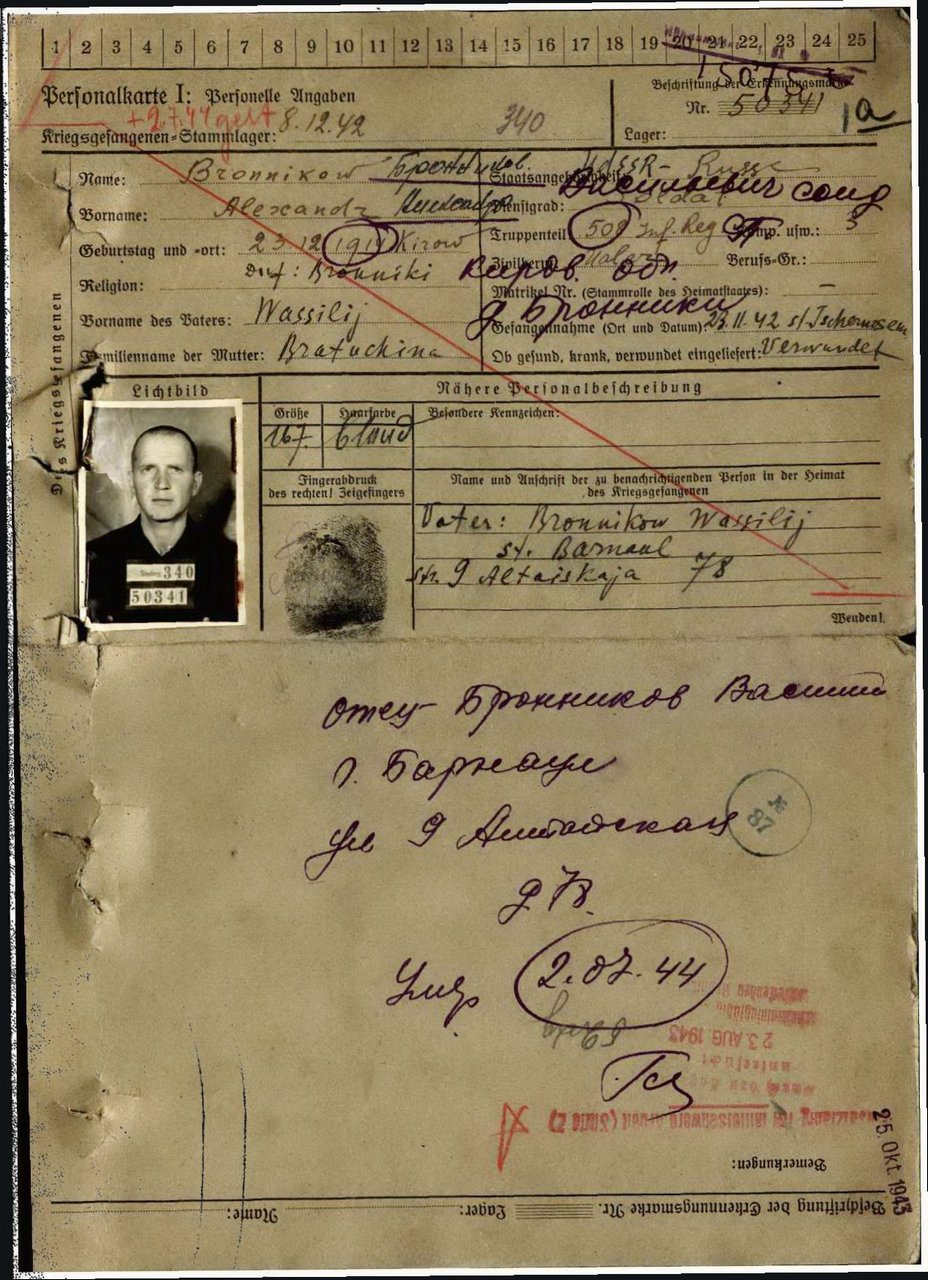 1 2 3 4 5 6 7 8 9 10 11 12 13 14 15 16 17 18 19 20 21 22 23 24 25
Personalkarte I: Personelle Angaben
Beschriftung der Erkennungsmarke
+ 2.7.44 gest
Nr. 50341
1a
Kriegsgefangenen-Stammlager: 8.12.42
340
Lager:
Des Kriegsgefangenen
Name: Bronnikow Бронников
Staatsangehörigkeit: UdSSR - Russe
Васильевич солд
Vorname: Alexandr Александр
Dienstgrad: Soldat
Geburtstag und -ort: 23.12.1919 Kirow
Truppenteil: 508 Inf. Reg Komp. usw.: 3
Dorf: Bronniki
Киров. обл.
Zivilberuf: Berufs-Gr.:
Religion:
Matrikel Nr. (Stammrolle des Heimatstaates): –
д Бронники
Vorname des Vaters: Wassilij
Gefangennahme (Ort und Datum): 23.11.42 st
Familienname der Mutter: Bratuchina
Ob gesund, krank, verwundet eingeliefert: Verwundet
Lichtbild
Nähere Personalbeschreibung
Größe
Haarfarbe
Besondere Kennzeichen:
167
blond
Fingerabdruck
des rechten! Zeigefingers
Name und Anschrift der zu benachrichtigenden Person in der Heimat
des Kriegsgefangenen
340
50341
Vater: Bronnikow Wassilij
st. Barnaul
str. 9 Altaiskaja 78
Wenden!
отец Бронников Василий
г. Барнаул
ул 9 Алтайская
№
87
д 78.
Умер 2.07.44
23. AUG 1943
25. Okt. 1943
Bemerkungen:
Name:
Lager:
Beschriftung der Erkennungsmarke Nr.